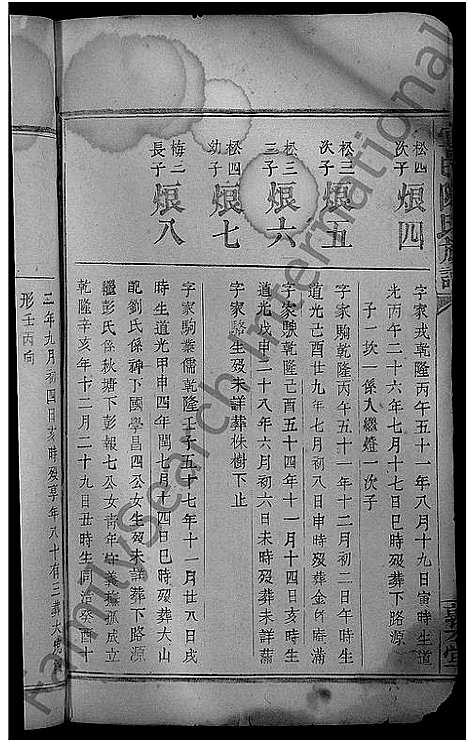 松四次子
烺四
字家戎乾隆丙午五十一年八月十九日寅時生道
光丙午二十六年七月十七日巳時歿葬下路源
子一次一係入繼燈一次子
松三次子
烺五
字家駒乾隆丙午五十一年十二月初二日午時生
道光己酉廿九年七月初八日申時歿葬金
滿
松三三子
烺六
字家駛乾隆己酉五十四年十一月十四日亥時生
道光戊申二十八年六月初六日未時歿未詳葬
松四幼子
烺七
字家駱生歿未詳葬株樹下止
梅二長子
烺八
字家駒業儒乾隆壬子五十七年十一月廿八日戌
時生道光甲申四年閏七月十四日巳時歿葬大山
配劉氏係神下國學昌四公女生歿未詳葬下路源
繼彭氏魯秋塘下彭報七公女青年守
撫孤成立
乾隆辛亥年十二月二十九日丑時生同治癸酉十
三年九月初四日亥時歿享年八十有三葬大
形壬丙向
陳氏族譜
義堂
FamilySearch International